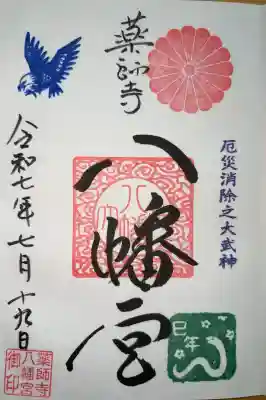 厄災消除之大武神
薬師寺
八幡宮
令和七年七月十九日
巳年
薬師寺
八幡宮
御印